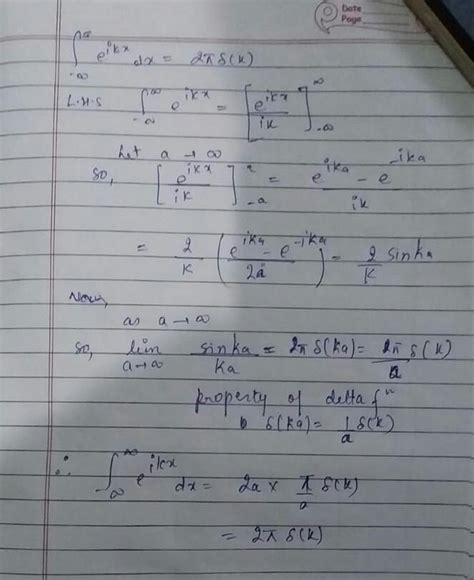 Date
Page
∫_{-∞}^{∞} e^{ikx} dx = 2π δ(k)
L.H.S ∫_{-∞}^{∞} e^{ikx} = [e^{ikx}/ik]_{-∞}^{∞}
Let a → ∞
So, [e^{ikx}/ik]_{-a}^{a} = (e^{ika} - e^{-ika})/ik
= 2/k ((e^{ika} - e^{-ika})/2i) = 2/k sinka
Now,
as a → ∞
So, lim_{a→∞} sinka/ka = 2π δ(ka) = 2π δ(k)/a
property of delta fⁿ
δ(ka) = 1/a δ(k)
∴ ∫_{-∞}^{∞} e^{ikx} dx = 2a x π/a δ(k)
= 2π δ(k)